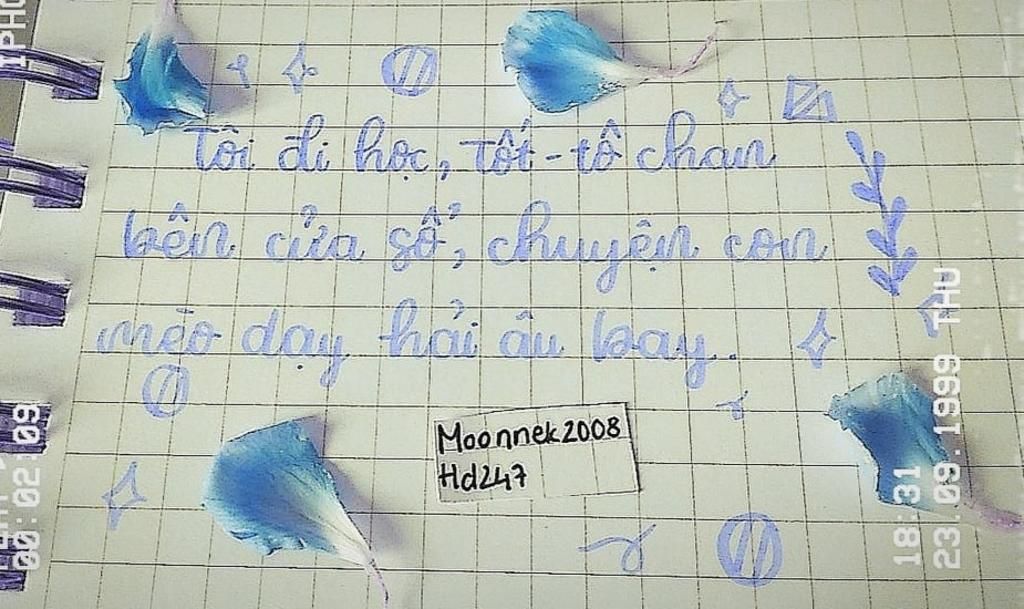 Tôi đi học, Tốt-tô chan
bên cửa sổ, chuyện con
mèo dạy hải âu bay.
Moonnek2008
Hd247
IPHO
00:02:09
18:31
23.09.1999 THU